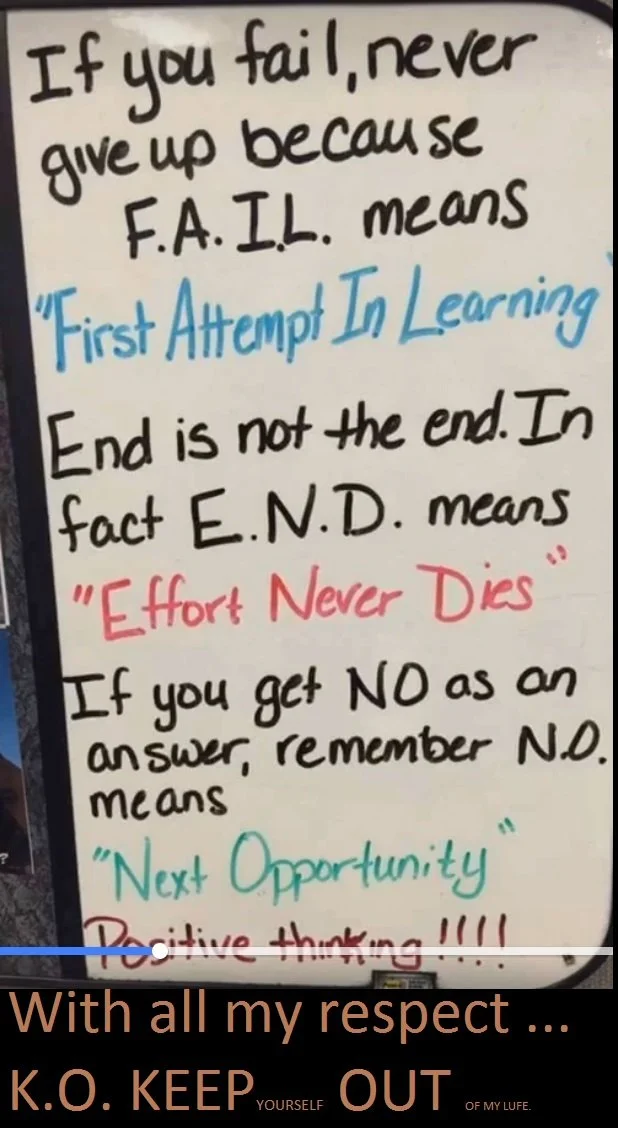 If you fail, never
give up because
F.A.I.L. means
"First Attempt In Learning"
End is not the end. In
fact E.N.D. means
"Effort Never Dies"
If you get NO as an
answer, remember N.O.
means
"Next Opportunity"
Positive thinking !!!!
With all my respect ...
K.O. KEEP YOURSELF OUT OF MY LUFE.